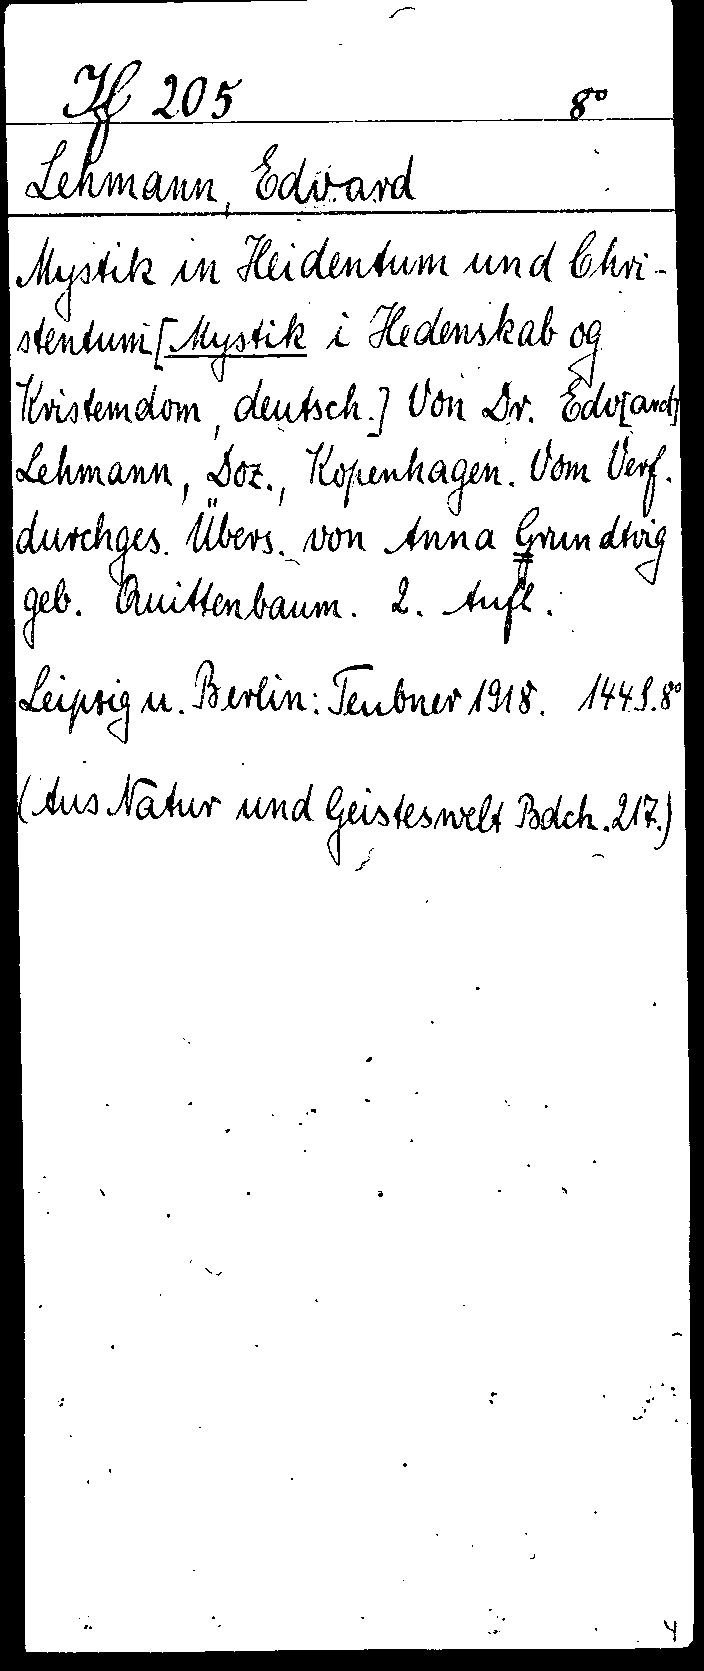 If 205 8°
Lehmann, Edvard
Mystik in Heidentum und Chri-
stentum [Mystik i Hedenskab og
Kristemdom, deutsch.] Von Dr. Edv[ard]
Lehmann, Doz., Kopenhagen. Vom Verf.
durchges. Übers. von Anna Grundtvig
geb. Quittenbaum. 2. Aufl.
Leipzig u. Berlin: Teubner 1918. 144 S. 8°
(Aus Natur und Geisteswelt Bdch. 217.)
4